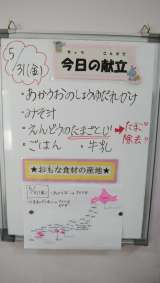 5/31(金)
きょう こんだて
今日の献立
・あかうおのしょうゆだれがけ
・みそ汁
・えんどうのたまごとじ→たまご除去
・ごはん ・牛乳
★おもな食材の産地★